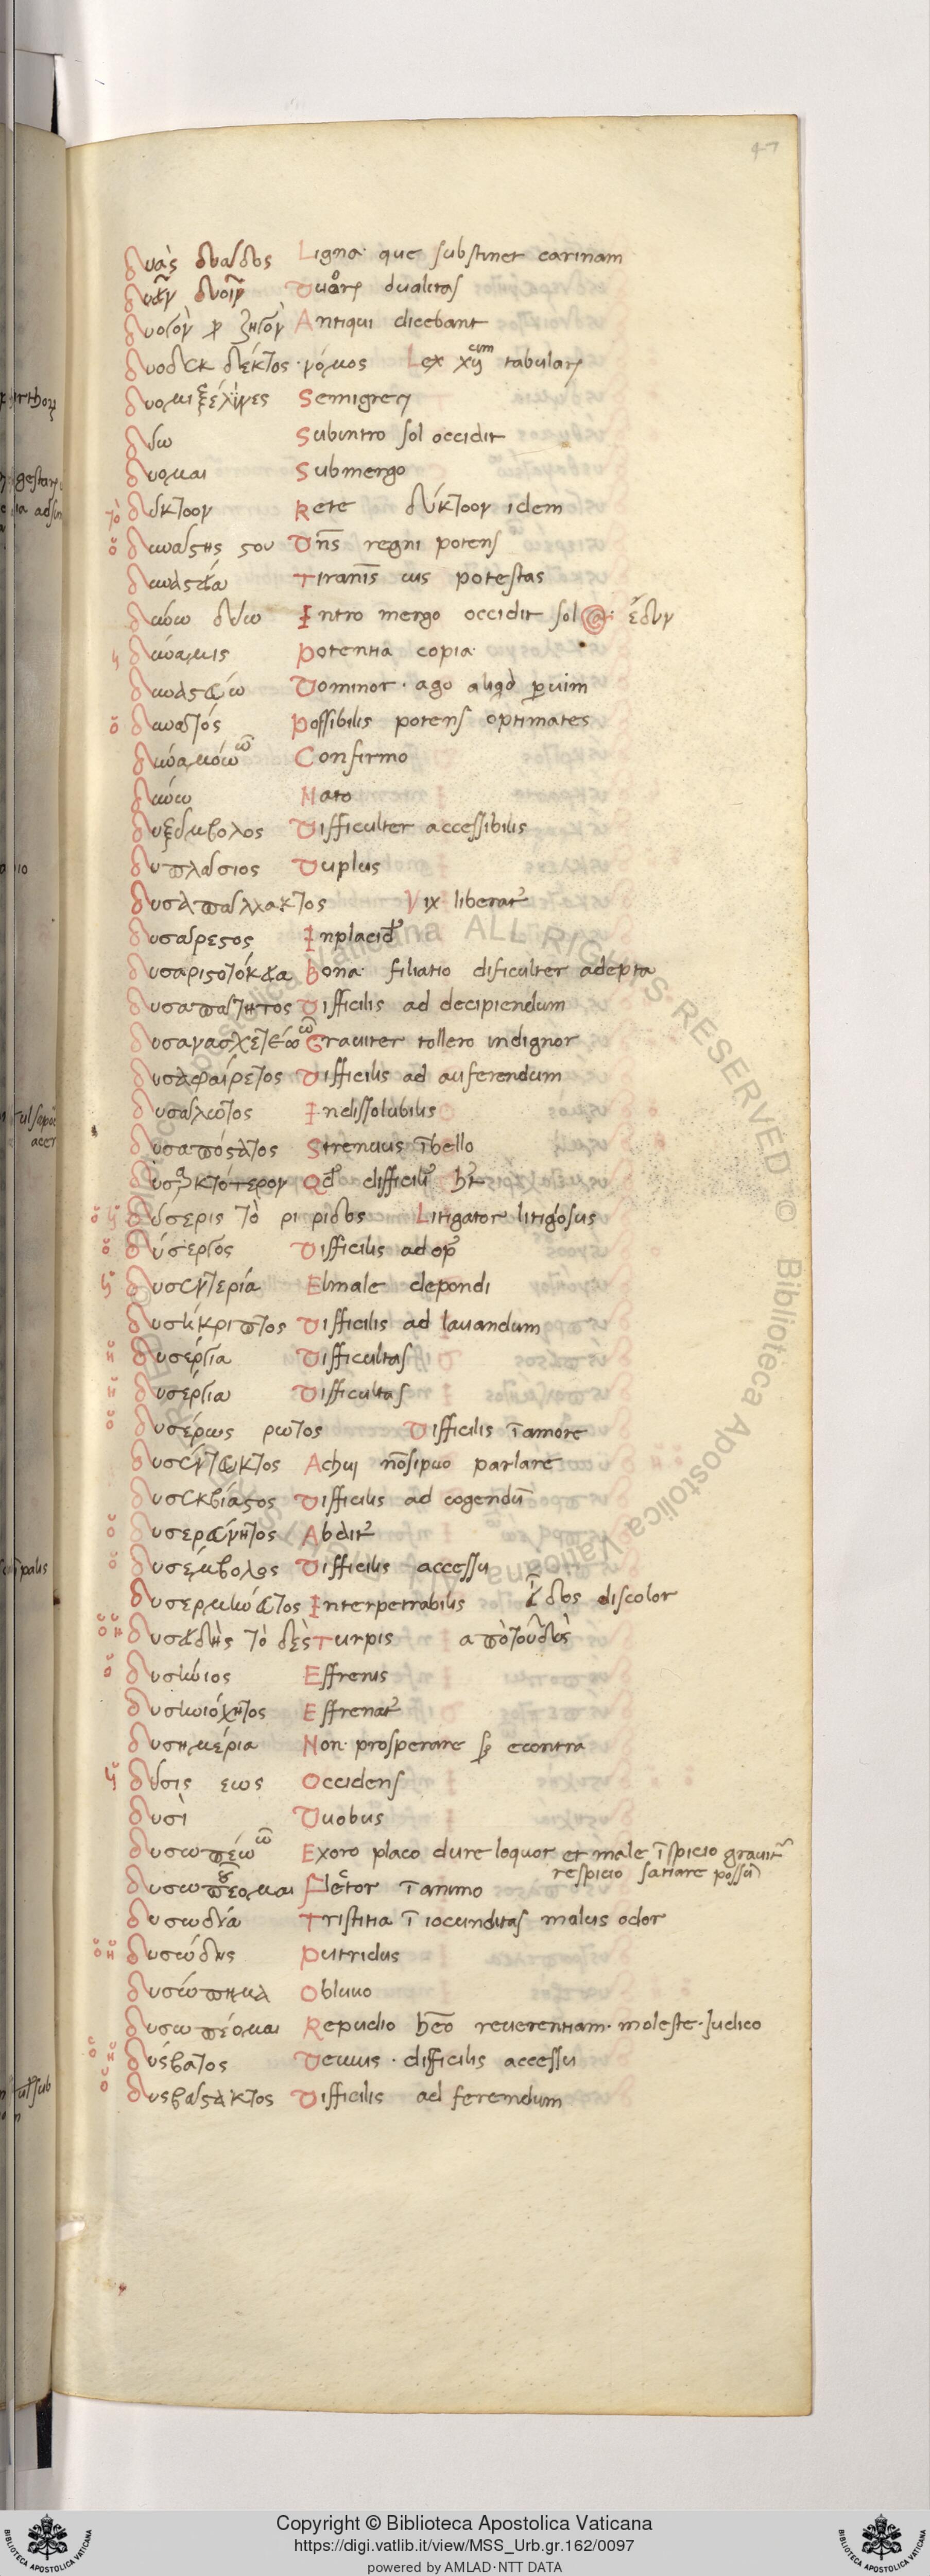 47
δυὰς δυάδος Ligna que substinet carinam
δυεῖν δυοῖν Duoꝝ dualitas
δυογὸν ζηγὸν Antiqui dicebant
δυοδεκ δέκτος νόμος Lex xij cim tabulaꝝ
Semigreci
δύω Subintro sol occidit
δυομαι Submergo
τὸ δύκτοον Rete δύκτοον idem
ὁ δυνάστης στου Dn̄s regni potens
δυναστεία Tiranīs uis potestas
δυνύω δύω Intro mergo occidit sol ἔδυν
ἡ δύναμις Potentia copia
δυναστεύω Dominor ago aliqd ꝑ uim
ὁ δυνατός Possibilis potens optimates
δυναμόω ῶ Confirmo
δυνύω Nato
δυξύμβολος Difficulter accessibilis
δυπλάσιος Duplus
δυσαπάλλακτος Vix liberat
δυσάρεστος Inplacid
δυσαριστοτόκεια Bona filiatio dificulter adepta
δυσαπάτητος Difficilis ad decipiendum
δυσανασχετέω ῶ Grauiter tollero indignor
δυσαφαίρετος Difficilis ad auferendum
δυσάλωτος Indissolubilis
δυσαπόστατος Strenuus ī bello
Qd difficili hr̄
ὁ ἡ δύσερις τὸ ρι ριδος Litigator litigosus
ὁ δύσεργος Difficilis ad op
ἡ δυσεντερία Elmale depondi
δυσέκκριπτος Difficilis ad lauandum
ἡ δυσεργία Difficultas
ἡ δυσεργία Difficultas
ὁ δυσέρως ρωτος Difficilis ī amore
δυσέντευκτος Achuj nō si puo parlare
δυσεκβίαστος Difficilis ad cogendū
ὁ Abdit
ὁ δυσέμβολος Difficilis accessu
δυσερμήνευτος Interpetrabilis discolor
ὁ ἡ δυσειδὴς τὸ δὲς Turpis ἀπὸ τοῦ εἶδος
ὁ δυσήνιος Effrenis
δυσηνιόχητος Effrenat
δυσημερία Non prosperare econtra
ἡ δύσις εως Occidens
δυσὶ Duobus
δυσωπέω ῶ Exoro placo dure loquor et male īspicio grauit
respicio satiare possū
δυσωπέομαι Flector ī animo
δυσωδία Tristitia ī iocunditas malus odor
ὁ ἡ δυσώδης Putridus
Obliuio
δυσωπέομαι Repudio hēo reuerentiam moleste Judico
ὁ ἡ δύσβατος Deuius difficilis accessu
ὁ δυσβάστακτος Difficilis ad ferendum
Copyright © Biblioteca Apostolica Vaticana
https://digi.vatlib.it/view/MSS_Urb.gr.162/0097
powered by AMLAD·NTT DATA